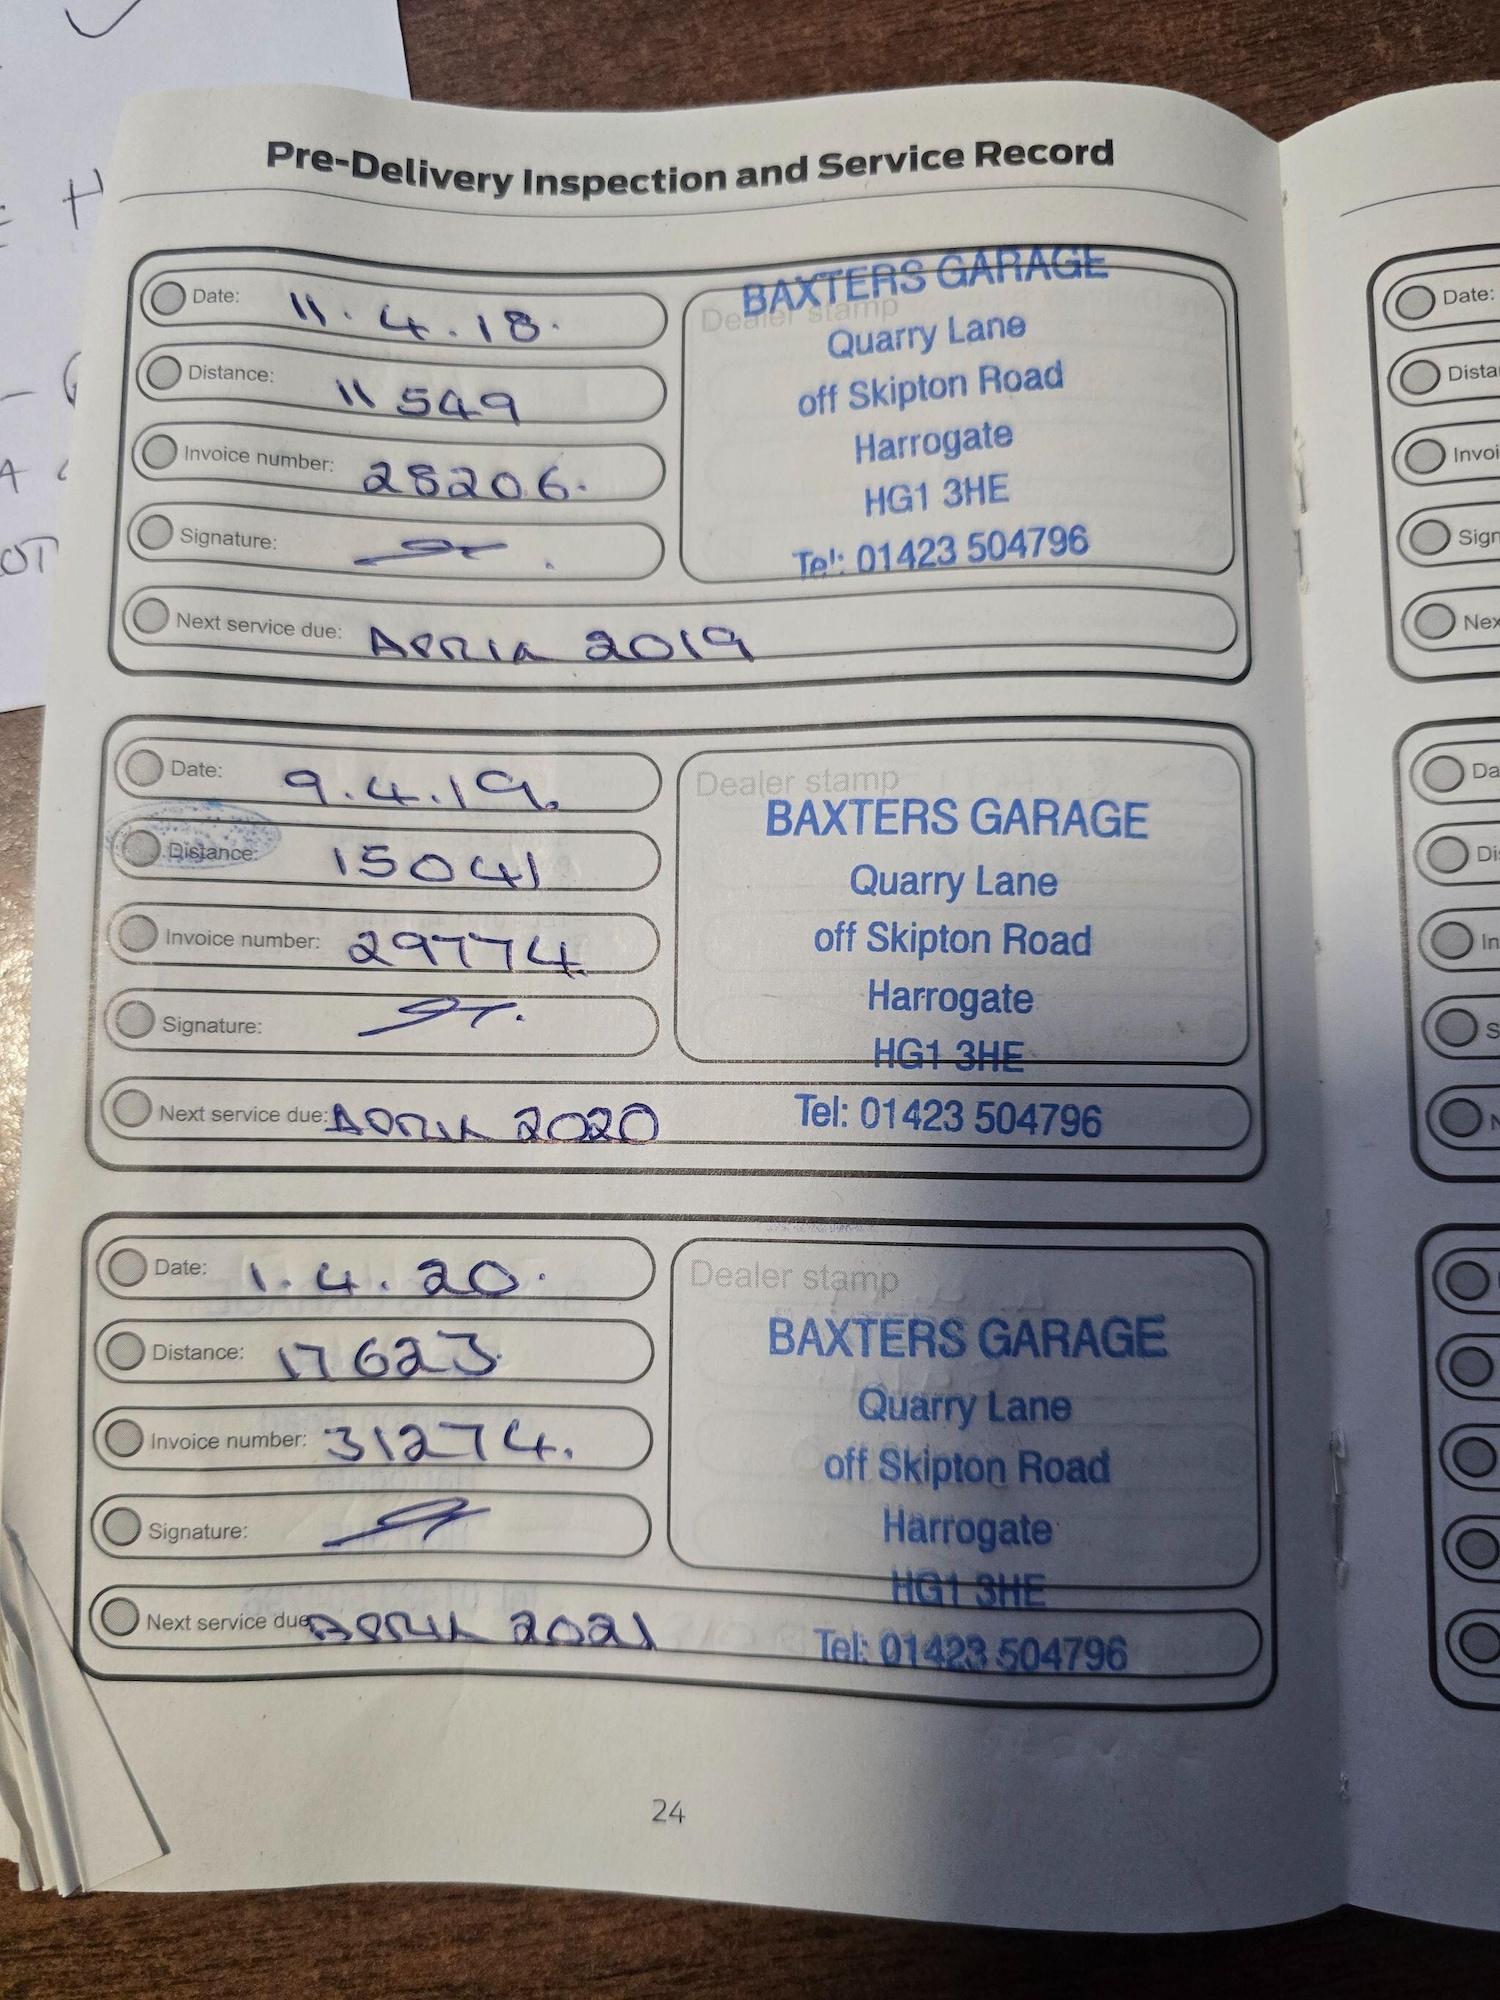 Pre-Delivery Inspection and Service Record
Date: 11.4.18.
Distance: 11549
Invoice number: 28206.
Signature:
Next service due: APRIL 2019
Dealer stamp
BAXTERS GARAGE
Quarry Lane
off Skipton Road
Harrogate
HG1 3HE
Tel: 01423 504796
Date: 9.4.19.
Distance: 15041
Invoice number: 29774.
Signature:
Next service due: APRIL 2020
Dealer stamp
BAXTERS GARAGE
Quarry Lane
off Skipton Road
Harrogate
HG1 3HE
Tel: 01423 504796
Date: 1.4.20.
Distance: 17623.
Invoice number: 31274.
Signature:
Next service due APRIL 2021
Dealer stamp
BAXTERS GARAGE
Quarry Lane
off Skipton Road
Harrogate
HG1 3HE
Tel: 01423 504796
24
Date: